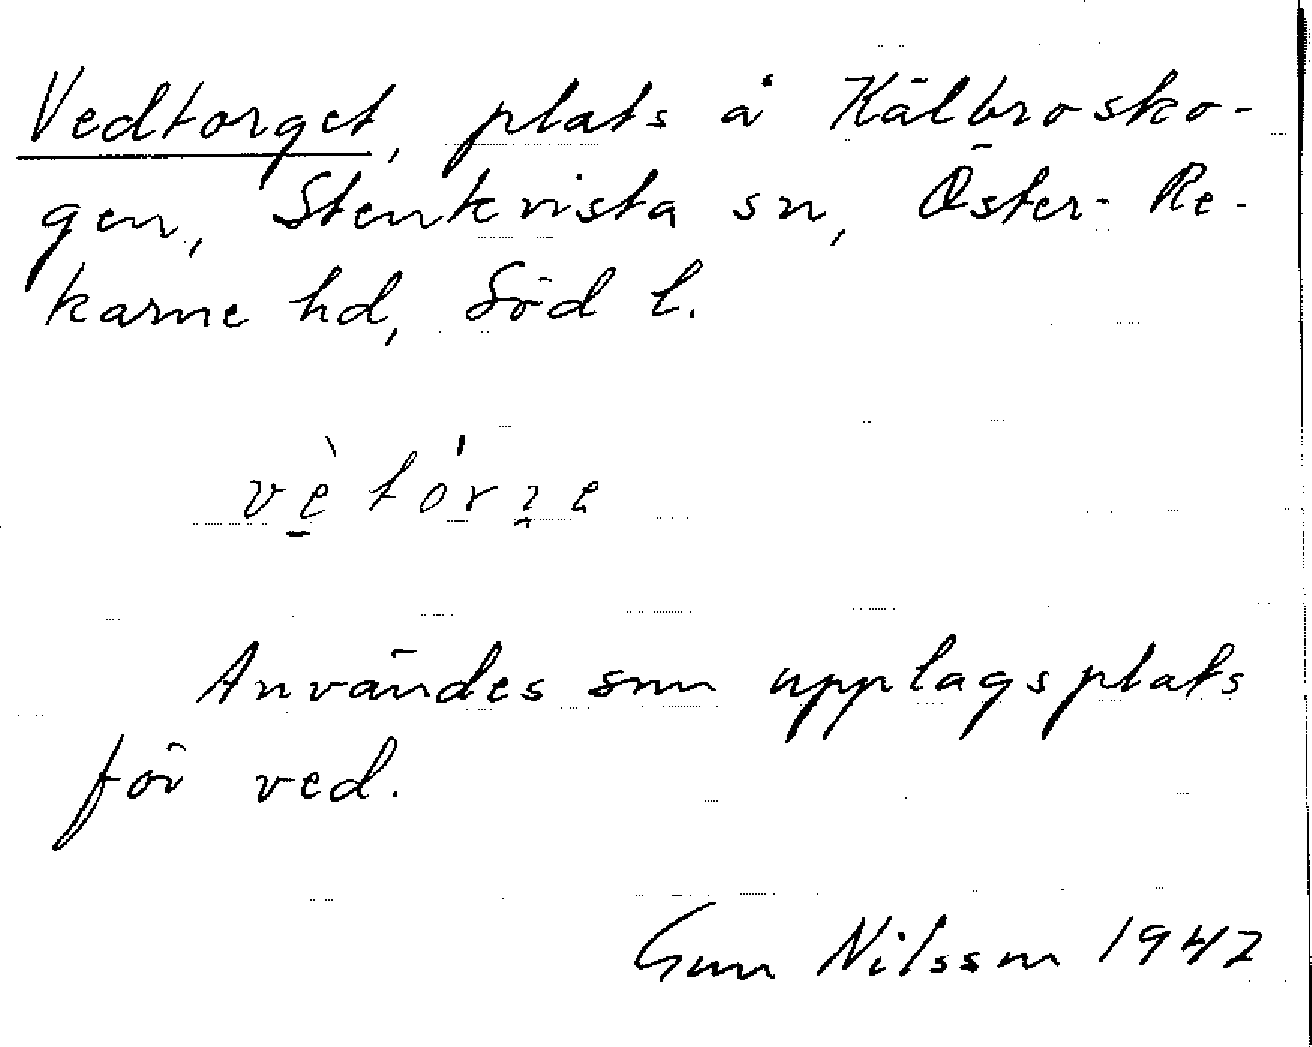 Vedtorget, plats å Kälbrosko-
gen, Stenkvista sn, Öster-Re-
karne hd, Söd l.
Användes som upplagsplats
för ved.
Gun Nilsson 1942